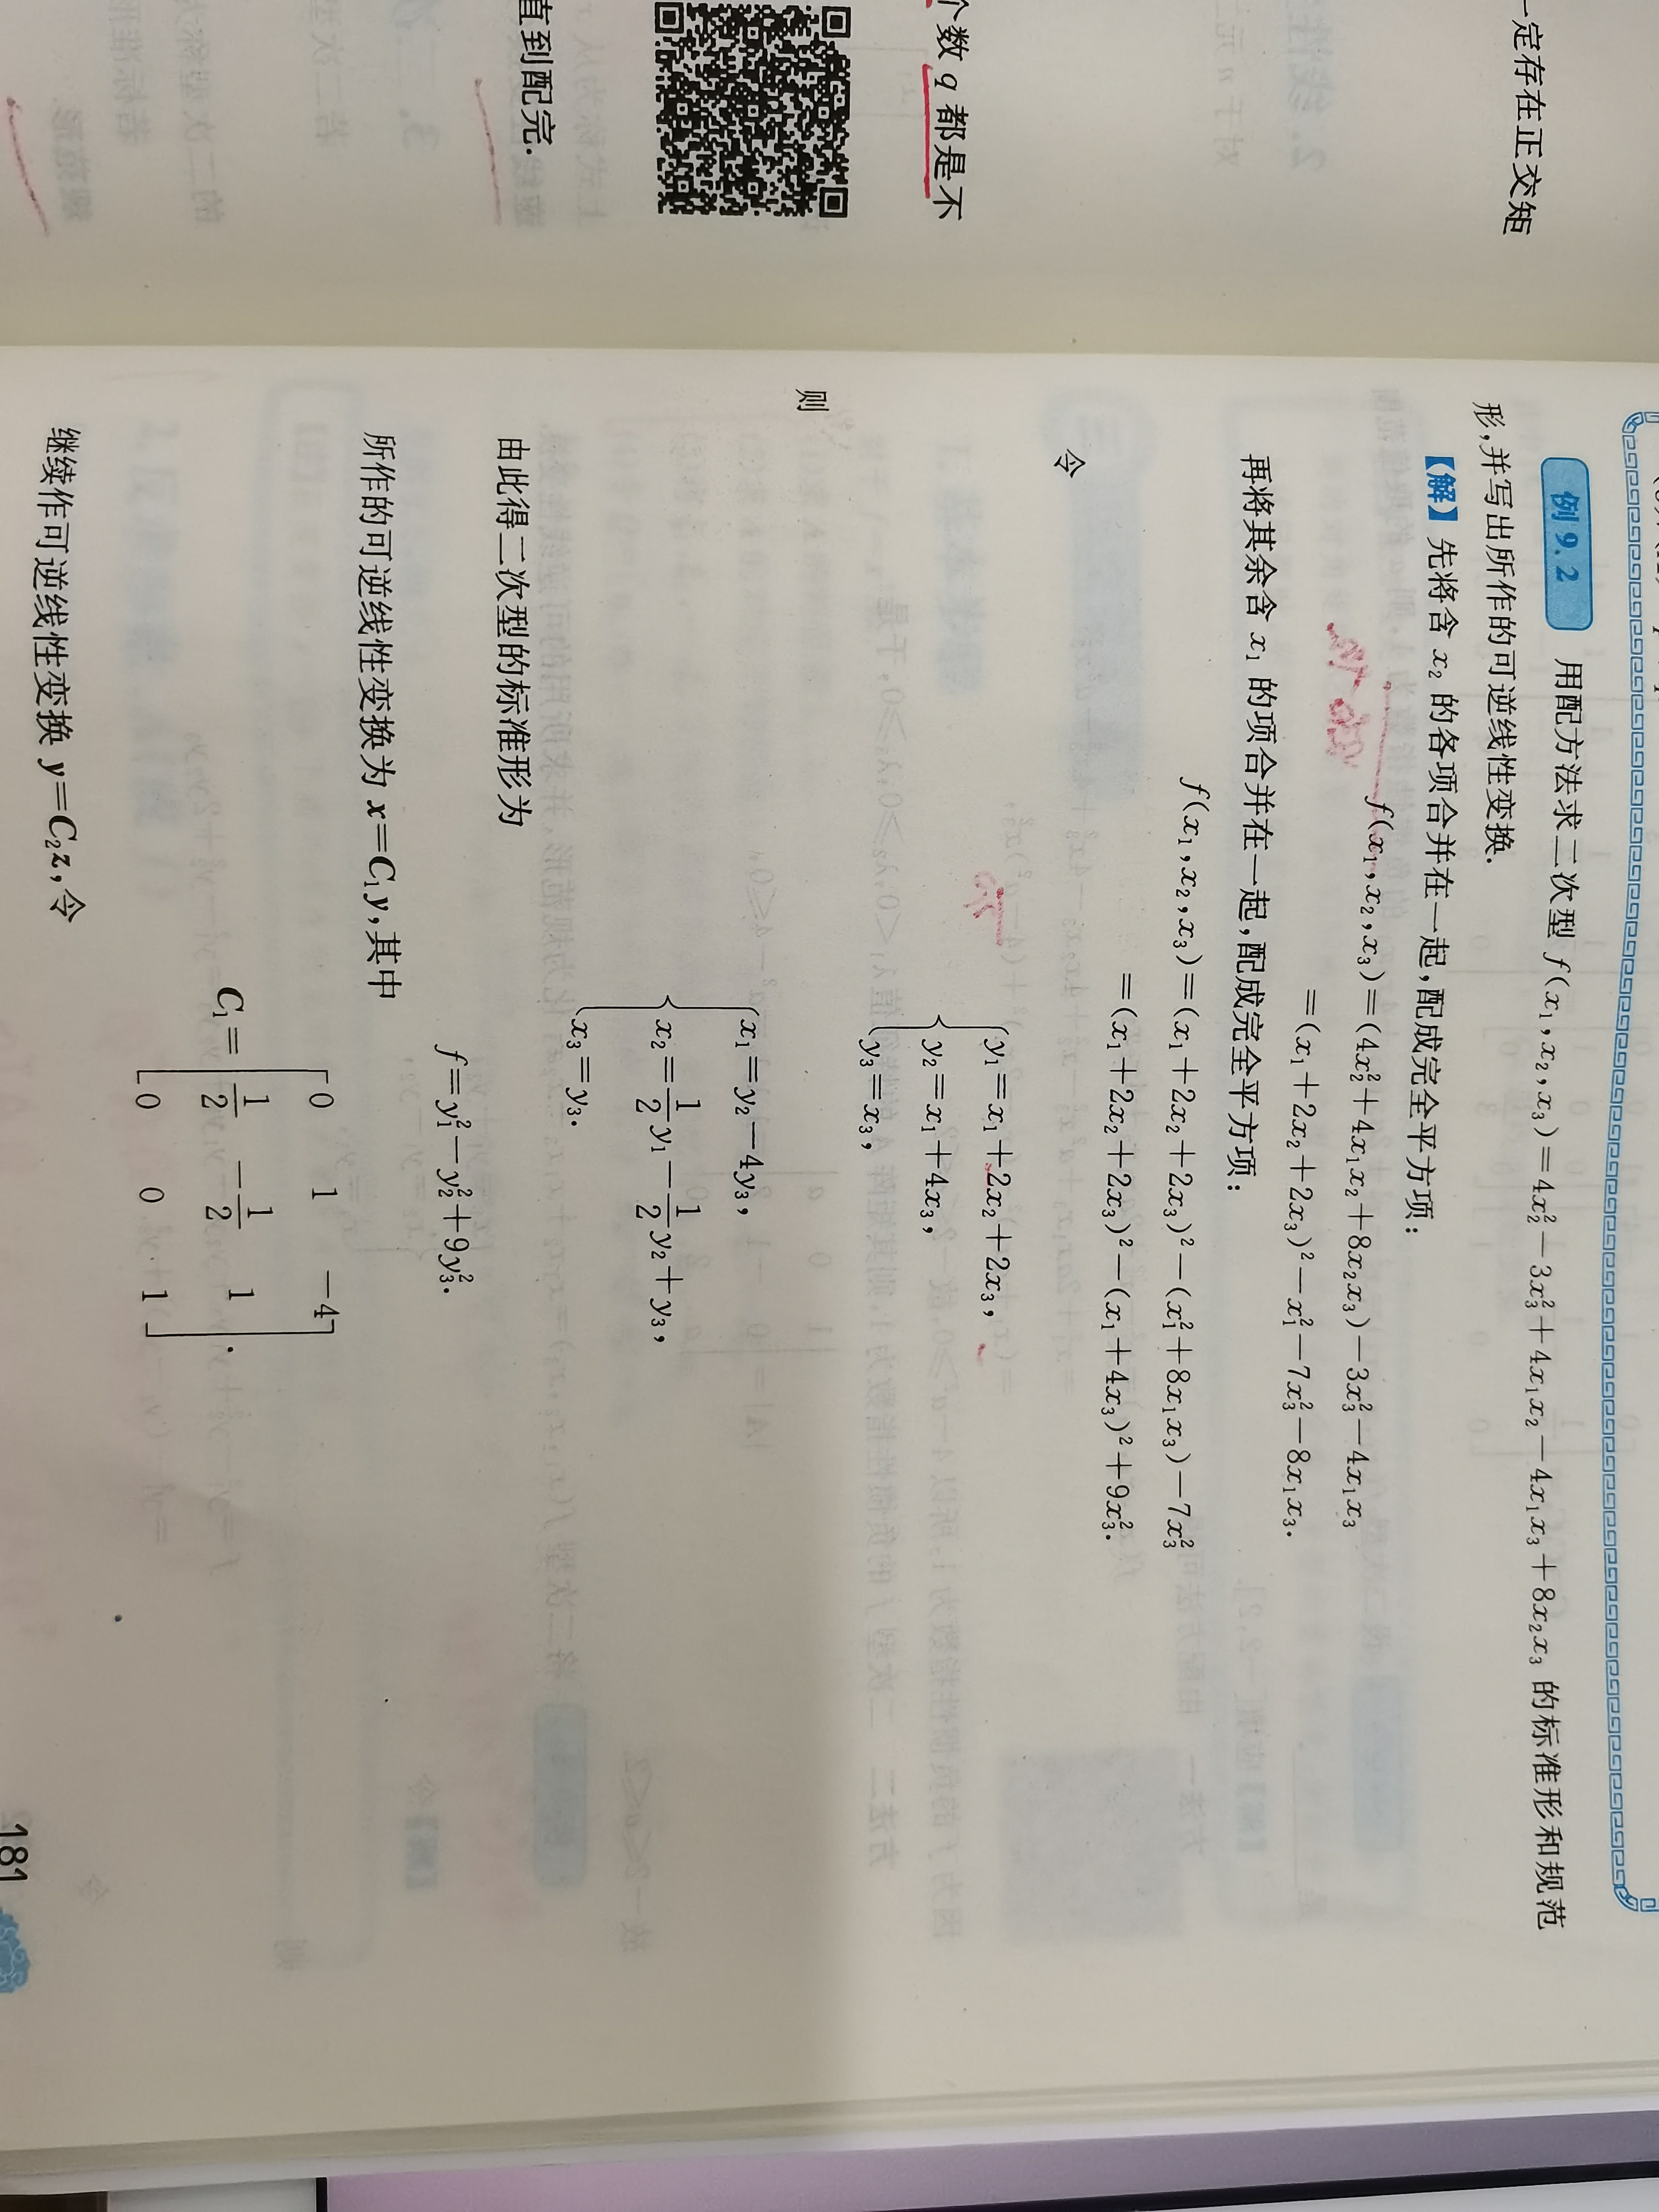 一定存在正交矩
个数 q 都是不
直到配完.
例 9.2 用配方法求二次型 f(x₁,x₂,x₃)=4x₂²-3x₃²+4x₁x₂-4x₁x₃+8x₂x₃ 的标准形和规范
形,并写出所作的可逆线性变换.
【解】 先将含 x₂ 的各项合并在一起,配成完全平方项:
f(x₁,x₂,x₃)=(4x₂²+4x₁x₂+8x₂x₃)-3x₃²-4x₁x₃
=(x₁+2x₂+2x₃)²-x₁²-7x₃²-8x₁x₃.
再将其余含 x₁ 的项合并在一起,配成完全平方项:
f(x₁,x₂,x₃)=(x₁+2x₂+2x₃)²-(x₁²+8x₁x₃)-7x₃²
=(x₁+2x₂+2x₃)²-(x₁+4x₃)²+9x₃².
令
y₁=x₁+2x₂+2x₃,
y₂=x₁+4x₃,
y₃=x₃,
则
x₁=y₂-4y₃,
x₂=1/2 y₁-1/2 y₂+y₃,
x₃=y₃.
由此得二次型的标准形为
f=y₁²-y₂²+9y₃².
所作的可逆线性变换为 x=C₁y,其中
C₁=
0 1 -4
1/2 -1/2 1
0 0 1
.
继续作可逆线性变换 y=C₂z,令
181